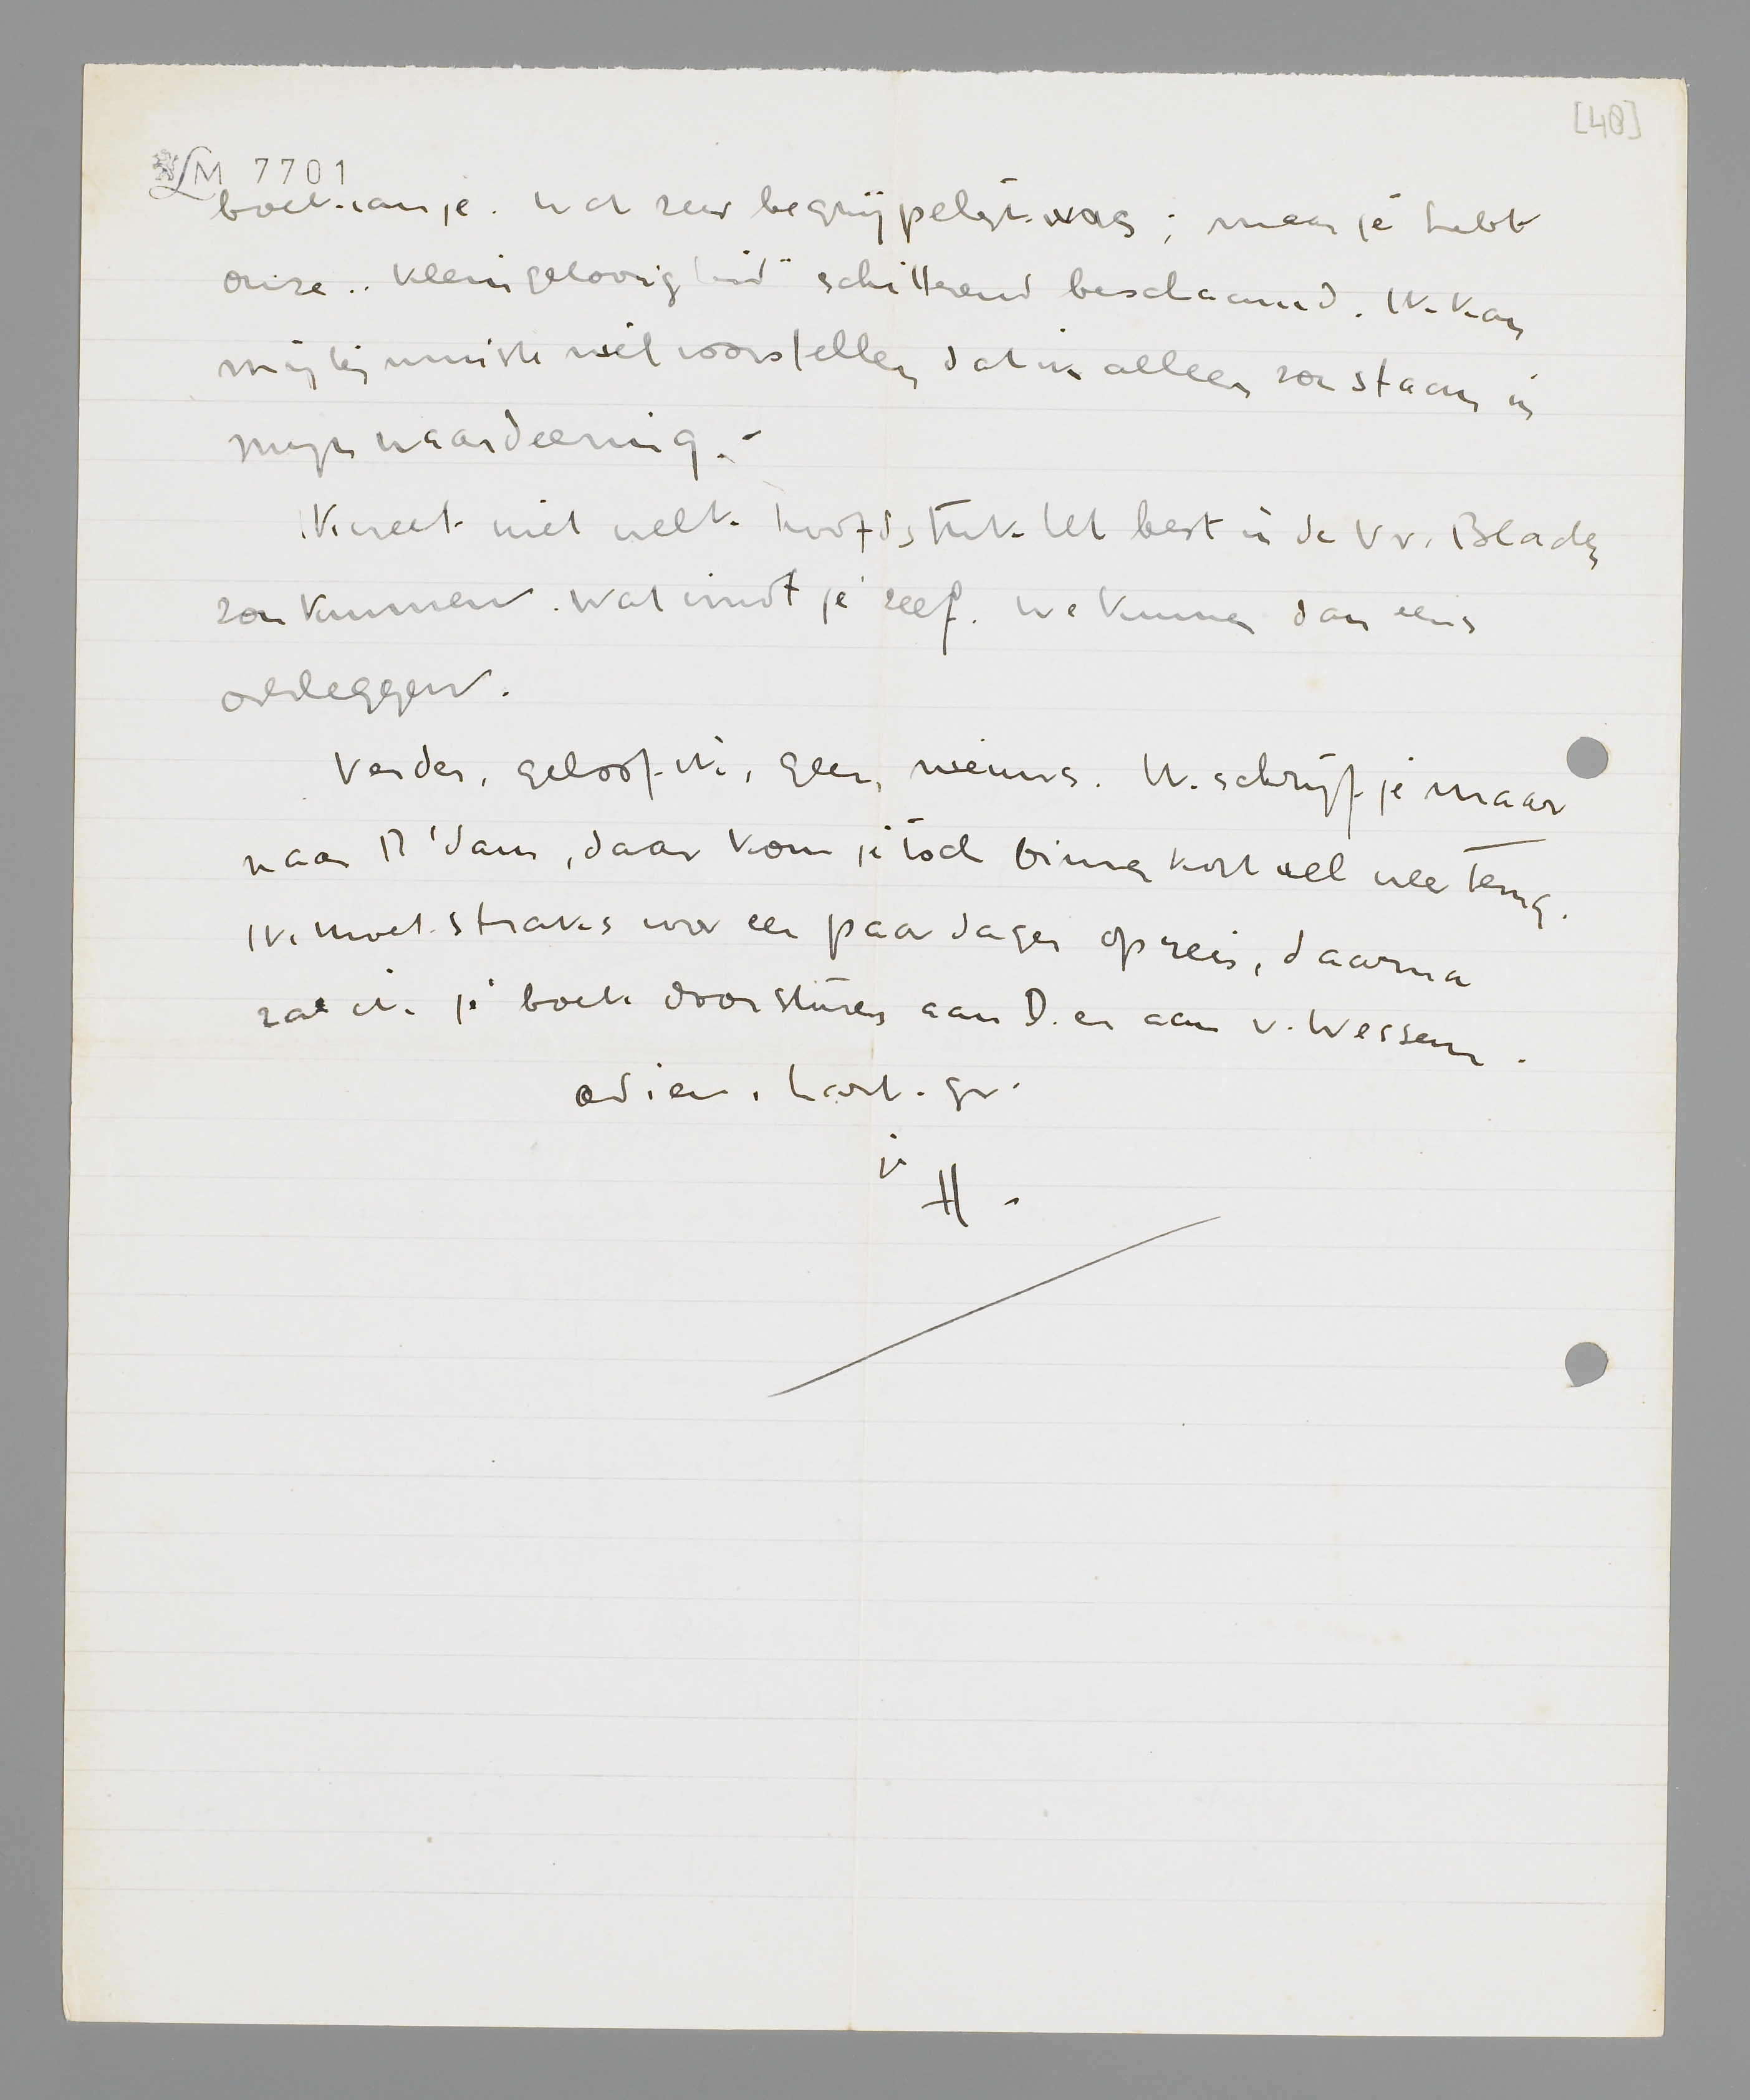 [48]
LM 7701
boek van je. Wat zeer begrijpelijk was; maar je hebt
onze „kleingelovigheid" schitterend beschaamd. Ik kan
mij tenminste niet voorstellen dat ik alleen zou staan in
mijn waardeering. -
Ik weet niet welk hoofdstuk het best in de Vr. Bladen
zou kunnen. Wat vindt je zelf. We kunnen dan eens
overleggen.
Verder, geloof ik, geen nieuws. Ik schrijf je maar
naar A'dam, daar kom je toch binnenkort wel weer terug.
Ik moet straks voor een paar dagen op reis, daarna
zal ik je boek doorsturen aan D. en aan v. Wessem.
adieu, hart. gr.
je
H.